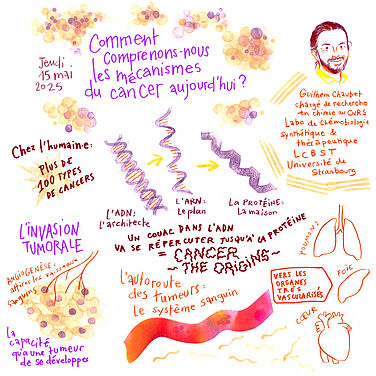 Jeudi
15 mai
2025
Comment
comprenons-nous
les mécanismes
du cancer aujourd'hui ?
Guilhem Chaubet
chargé de recherche
en chimie au CNRS
Labo de Chémobiologie
synthétique &
thérapeutique
LCBST
Université de
Strasbourg
Chez l'humaine :
PLUS DE
100 TYPES
DE CANCERS
L'ADN :
l'architecte
L'ARN :
Le plan
LA PROTÉINE :
LA maison
UN COUAC DANS L'ADN
VA SE RÉPERCUTER JUSQU'À LA PROTÉINE
= CANCER
~ THE ORIGINS ~
L'INVASION
TUMORALE
ANGIOGENÈSE :
attirer les vaisseaux
sanguins
La
capacité
qu'a une tumeur
de se développer
L'autoroute
des tumeurs :
Le système sanguin
VERS LES
ORGANES
TRÈS
VASCULARISÉS
POUMONS
FOIE
CŒUR